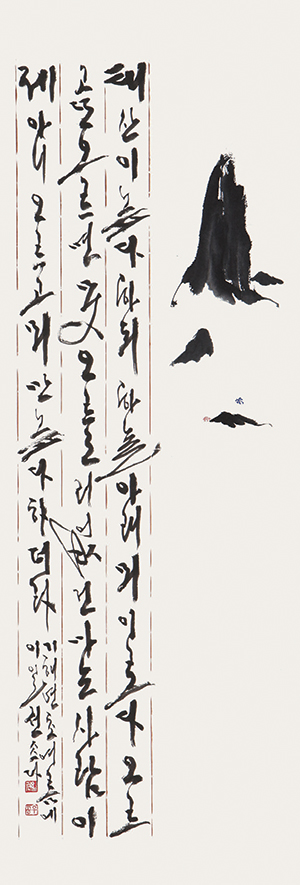 태산이 높다 하되 하늘 아래 뫼이로다 오르
고 또 오르면 못 오를 리 없건마는 사람이
제 아니 오르고 뫼만 높다 하더라
기해년 초여름에